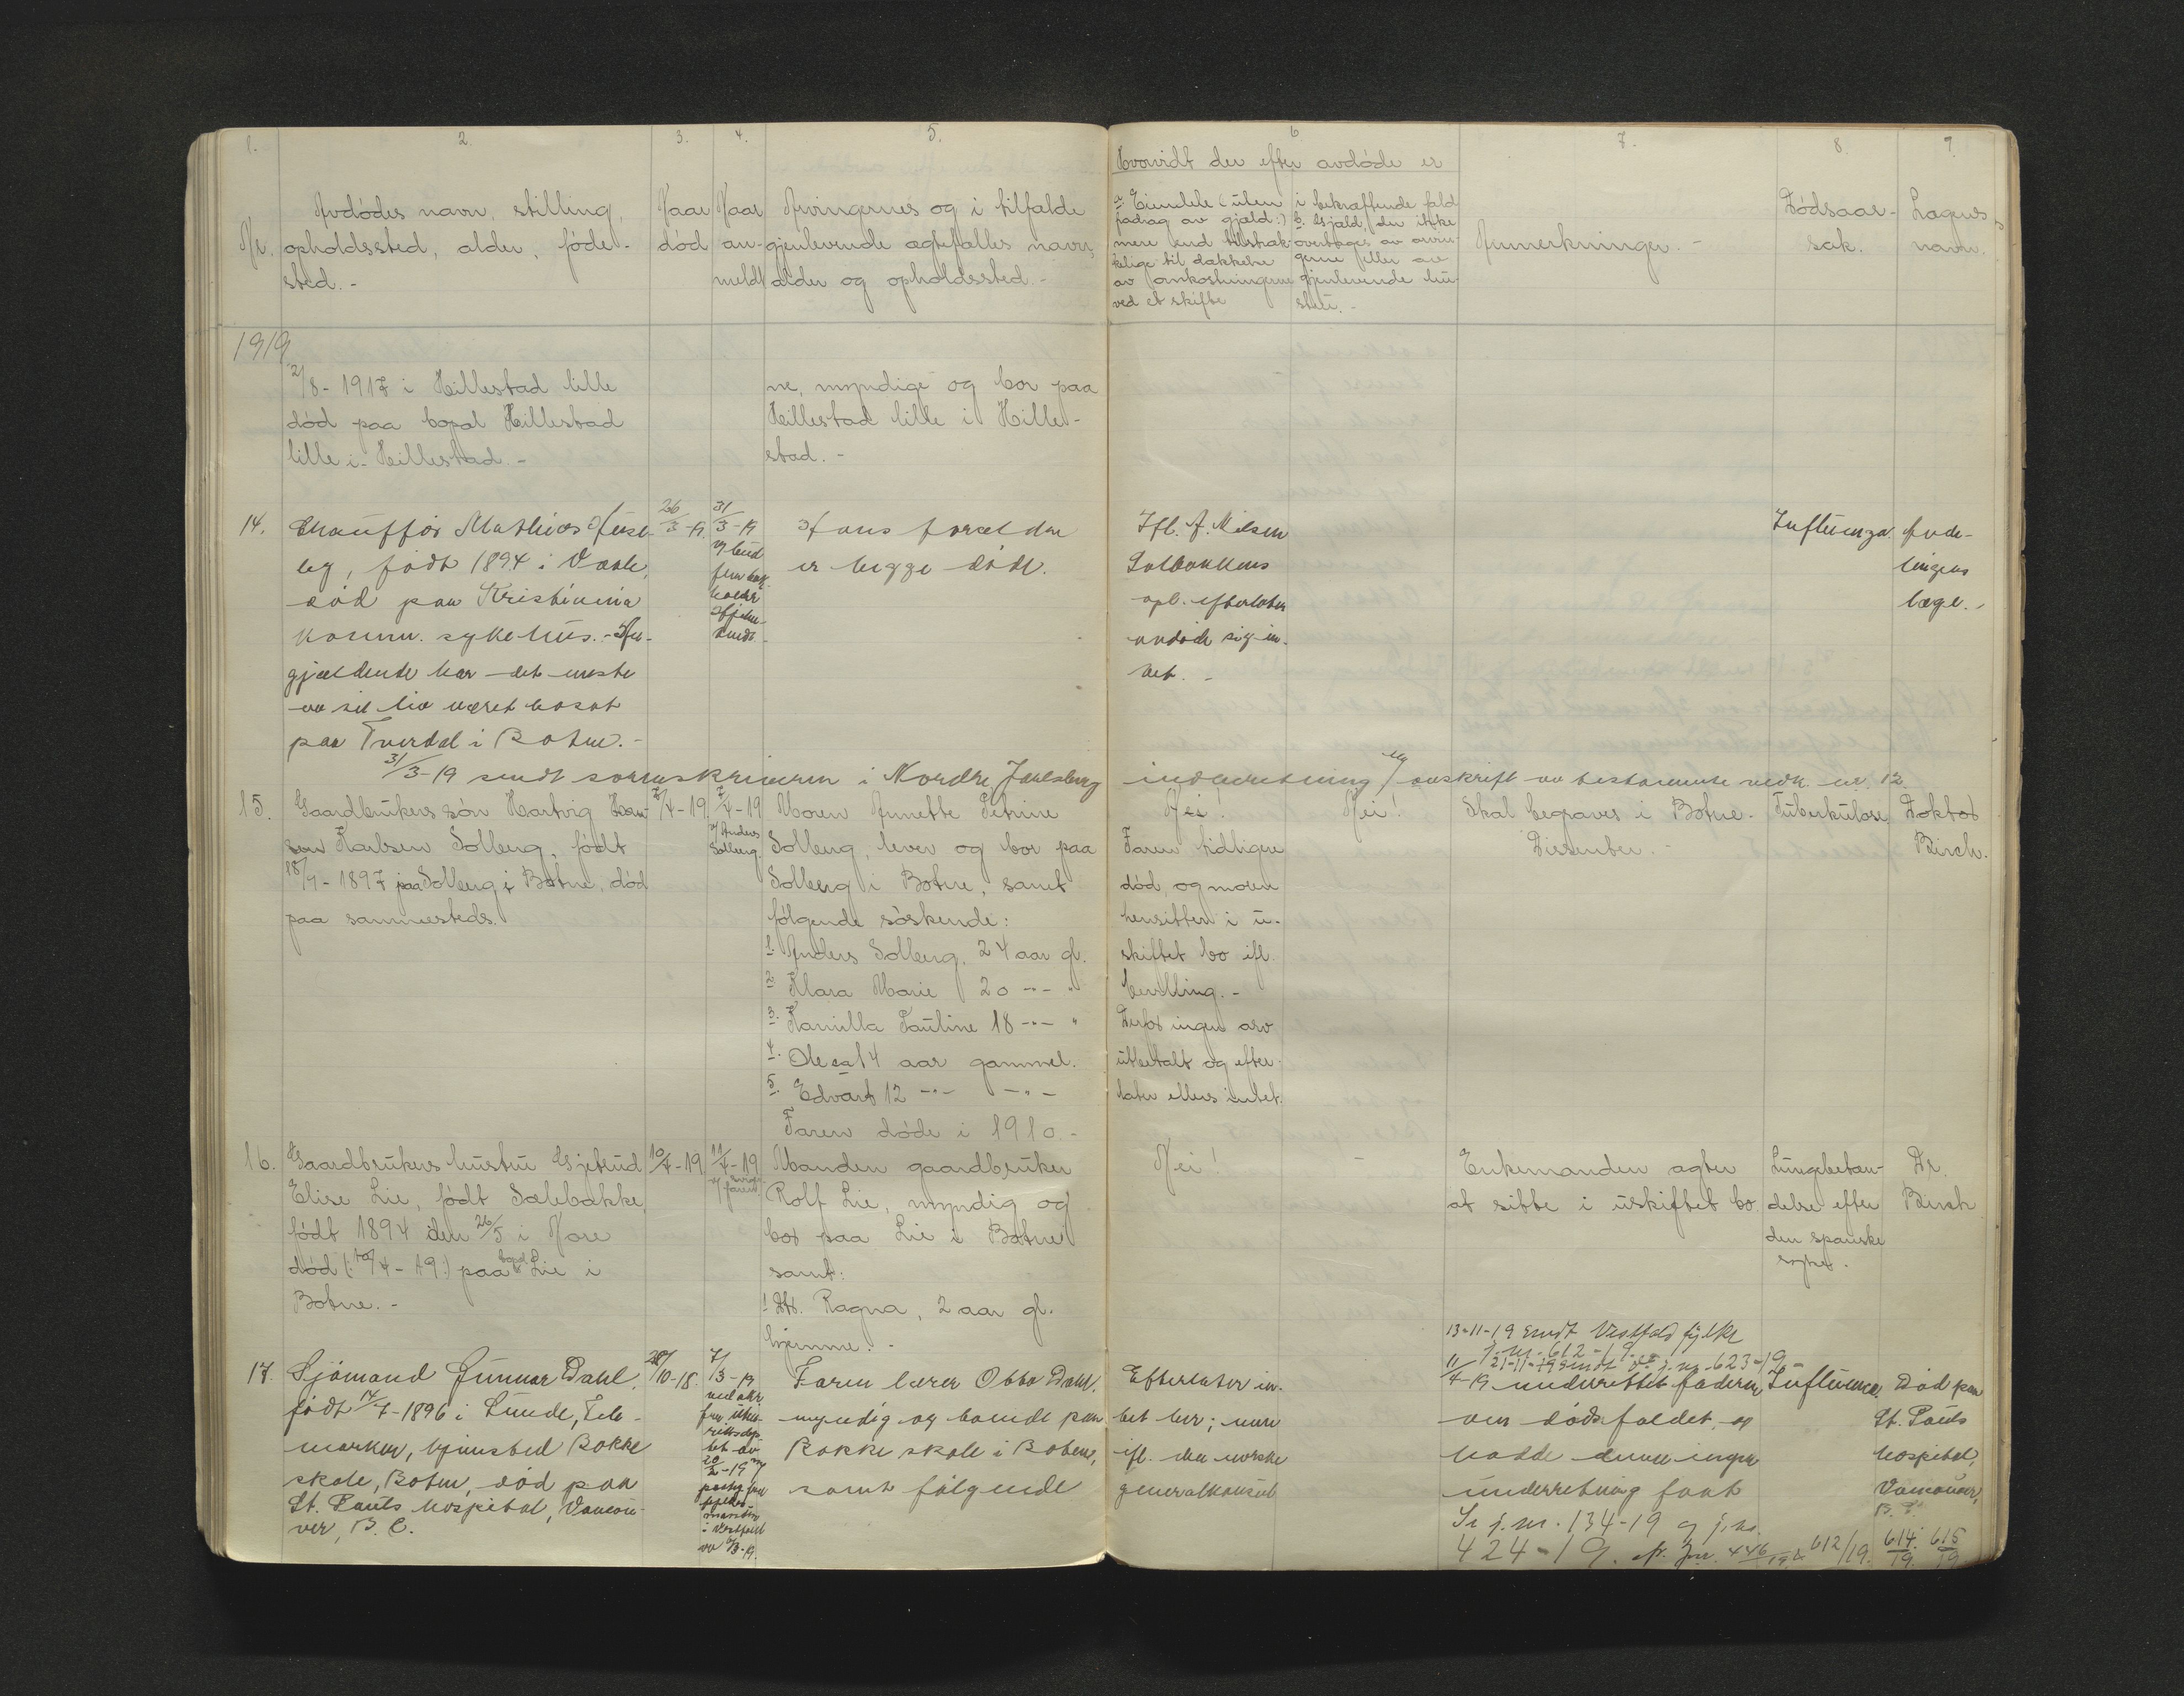 1. 2. 3. 4. 5. 6 7. 8. 9.
Nr.
Avdødes navn, stilling,
opholdssted, alder, føde-
sted. -
Naar
død
Naar
an-
meldt
Arvingernes og i tilfælde
gjenlevende ægtefælles navn,
alder og opholdssted. -
Hvorvidt der efter avdøde er
a. Eiendele (uten
fradrag av gjæld:)
mere end tilstræk-
kelige til dækkelse
av omkostningerne
ved et skifte
i bekræftende fald
b. Gjæld, der ikke
overtages av arvin-
gerne eller av
gjenlevende hu-
stru. -
Anmerkninger. -
Dødsaar-
sak.
Lægens
navn.
1919
2/8 - 1917 i Hillestad lille
død paa bopæl Hillestad
lille i Hillestad. -
ne, myndige og bor paa
Hillestad lille i Hille-
stad. -
14.
Chauffør Mathias
født 1894 i Vaale,
død paa Kristiania
komm. sykehus. -
gjældende har det meste
av sit liv været bosat
paa Tverdal i Botne. -
26/3 - 19.
31/3 - 19
Hans forældre
er begge døde.
Ifl. A. Nilsen
Solbakkens
opl. efterlater
avdøde sig in-
tet. -
Influenza
Avde-
lingens
læge. -
31/3 - 19 sendt sorenskriveren i Nordre Jarlsberg indberetning og avskrift av testamente vedk. nr. 12.
15.
Gaardbrukers søn Hartvig Han-
sen Karlsen Solberg, født
18/9 - 1897 paa Solberg i Botne, død
paa sammesteds.
/4 - 19
7/4 - 19
v/ Anders
Solberg.
Moren Annette Petrine
Solberg, lever og bor paa
Solberg i Botne, samt
følgende søskende:
1. Anders Solberg, 24 aar gl.
2. Klara Marie 20 -"- "
3. Kamilla Pauline 18 -"- "
4. Ole ca 14 aar gammel.
5. Edvart 12 -"- -"-
Faren døde i 1910. -
Nei!
Faren tidligere
død, og moren
hensitter i u-
skiftet bo ifl.
bevilling. -
Derfor ingen arv
utbetalt og efter-
later ellers intet.
Nei!
Skal begraves i Botne. -
Dissenter. -
Tuberkulose
Doktor
Birch.
16.
Gaardbrukers hustru Gjetrud
Elise Lie, født Sølebakke,
født 1894 den 26/5 i Nore
død (: 10/4 - 19:) paa bopæl Lie i
Botne. -
10/4 - 19
11/4 - 19
v/ sviger
faren
Manden gaardbruker
Rolf Lie, myndig og
bor paa Lie i Botne
samt:
1. Dtr. Ragna, 2 aar gl.
hjemme. -
Nei!
-
Enkemanden agter
at sitte i uskiftet bo
Lungebetæn-
delse efter
den spanske
syke. -
Dr.
Birch
17.
Sjømand Gunnar Dahl,
født 14/7 - 1896 i Lunde, Tele-
marken, hjemsted Rokke
skole, Botne, død paa
St. Pauls hospital, Vancou-
ver, B. C.
28/10 - 18.
7/3 - 19
Faren lærer Otto Dahl,
myndig og boende paa
Rokke skole i Botne,
samt følgende
Efterlater in-
tet her; men
ifl. den norske
generalkonsul
13-11-19 sendt Vestfold fylke
j. nr. 612 - 19. -
21-11-19 sendt do j. nr. 623-19 -
11/4 - 19 underrettet faderen
om dødsfaldet, og
hadde denne ingen
underretning faat
Se j. nr. 134-19 og j. nr.
424-19. 446/19, 612/19. 614/19. 615/19
Influenza
Død paa
St. Pauls
hospital,
Vancouver,
B. C.